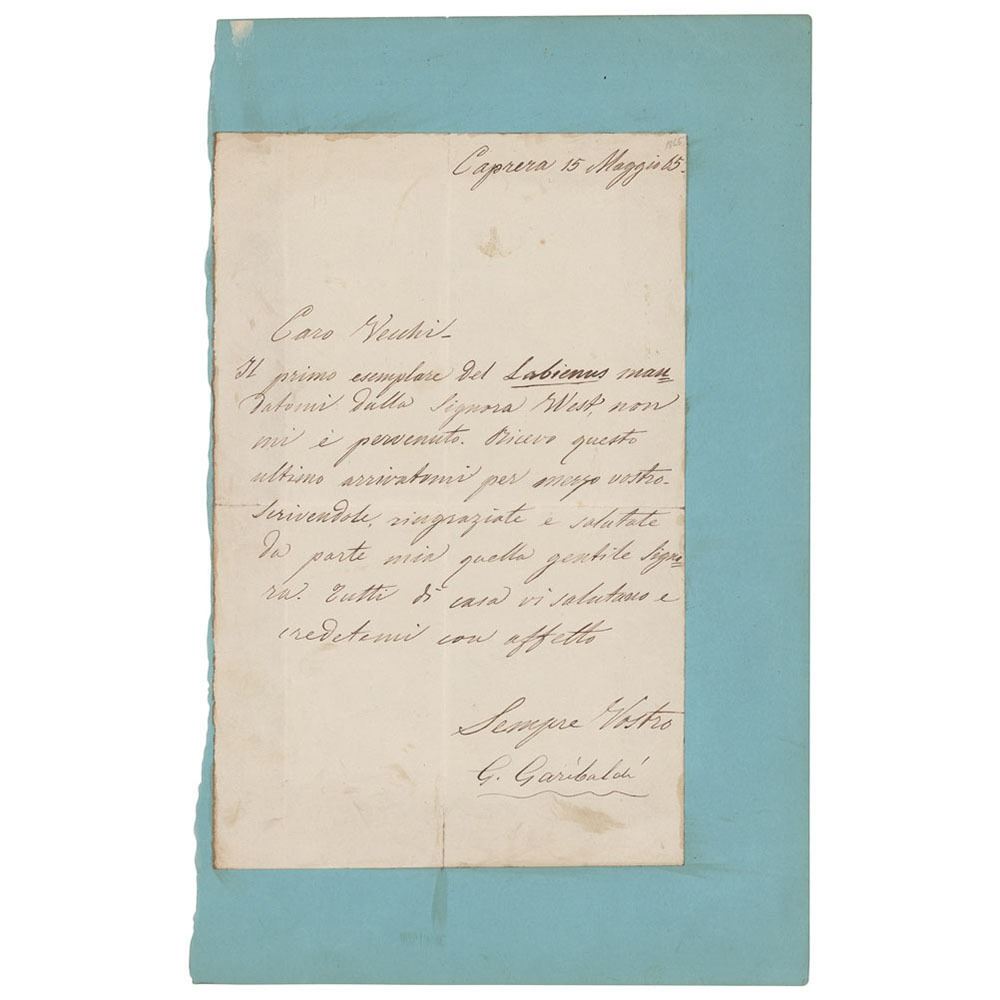 1865
Caprera 15 Maggio 65.
Caro Vecchi_
Il primo esemplare del Labienus man=
datomi dalla Signora West, non
mi è pervenuto. Ricevo questo
ultimo arrivatomi per mezzo vostro_
Scrivendole, ringraziate e salutate
da parte mia quella gentile Signo=
ra. Tutti di casa vi salutano e
credetemi con affetto
Sempre Vostro
G. Garibaldi